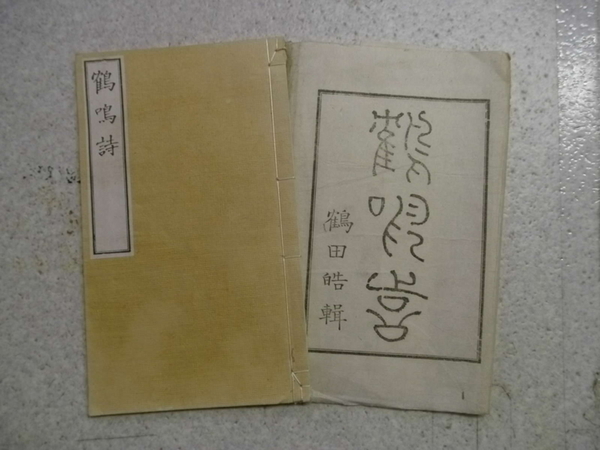 鶴鳴詩
鶴鳴詩
鶴田皓輯